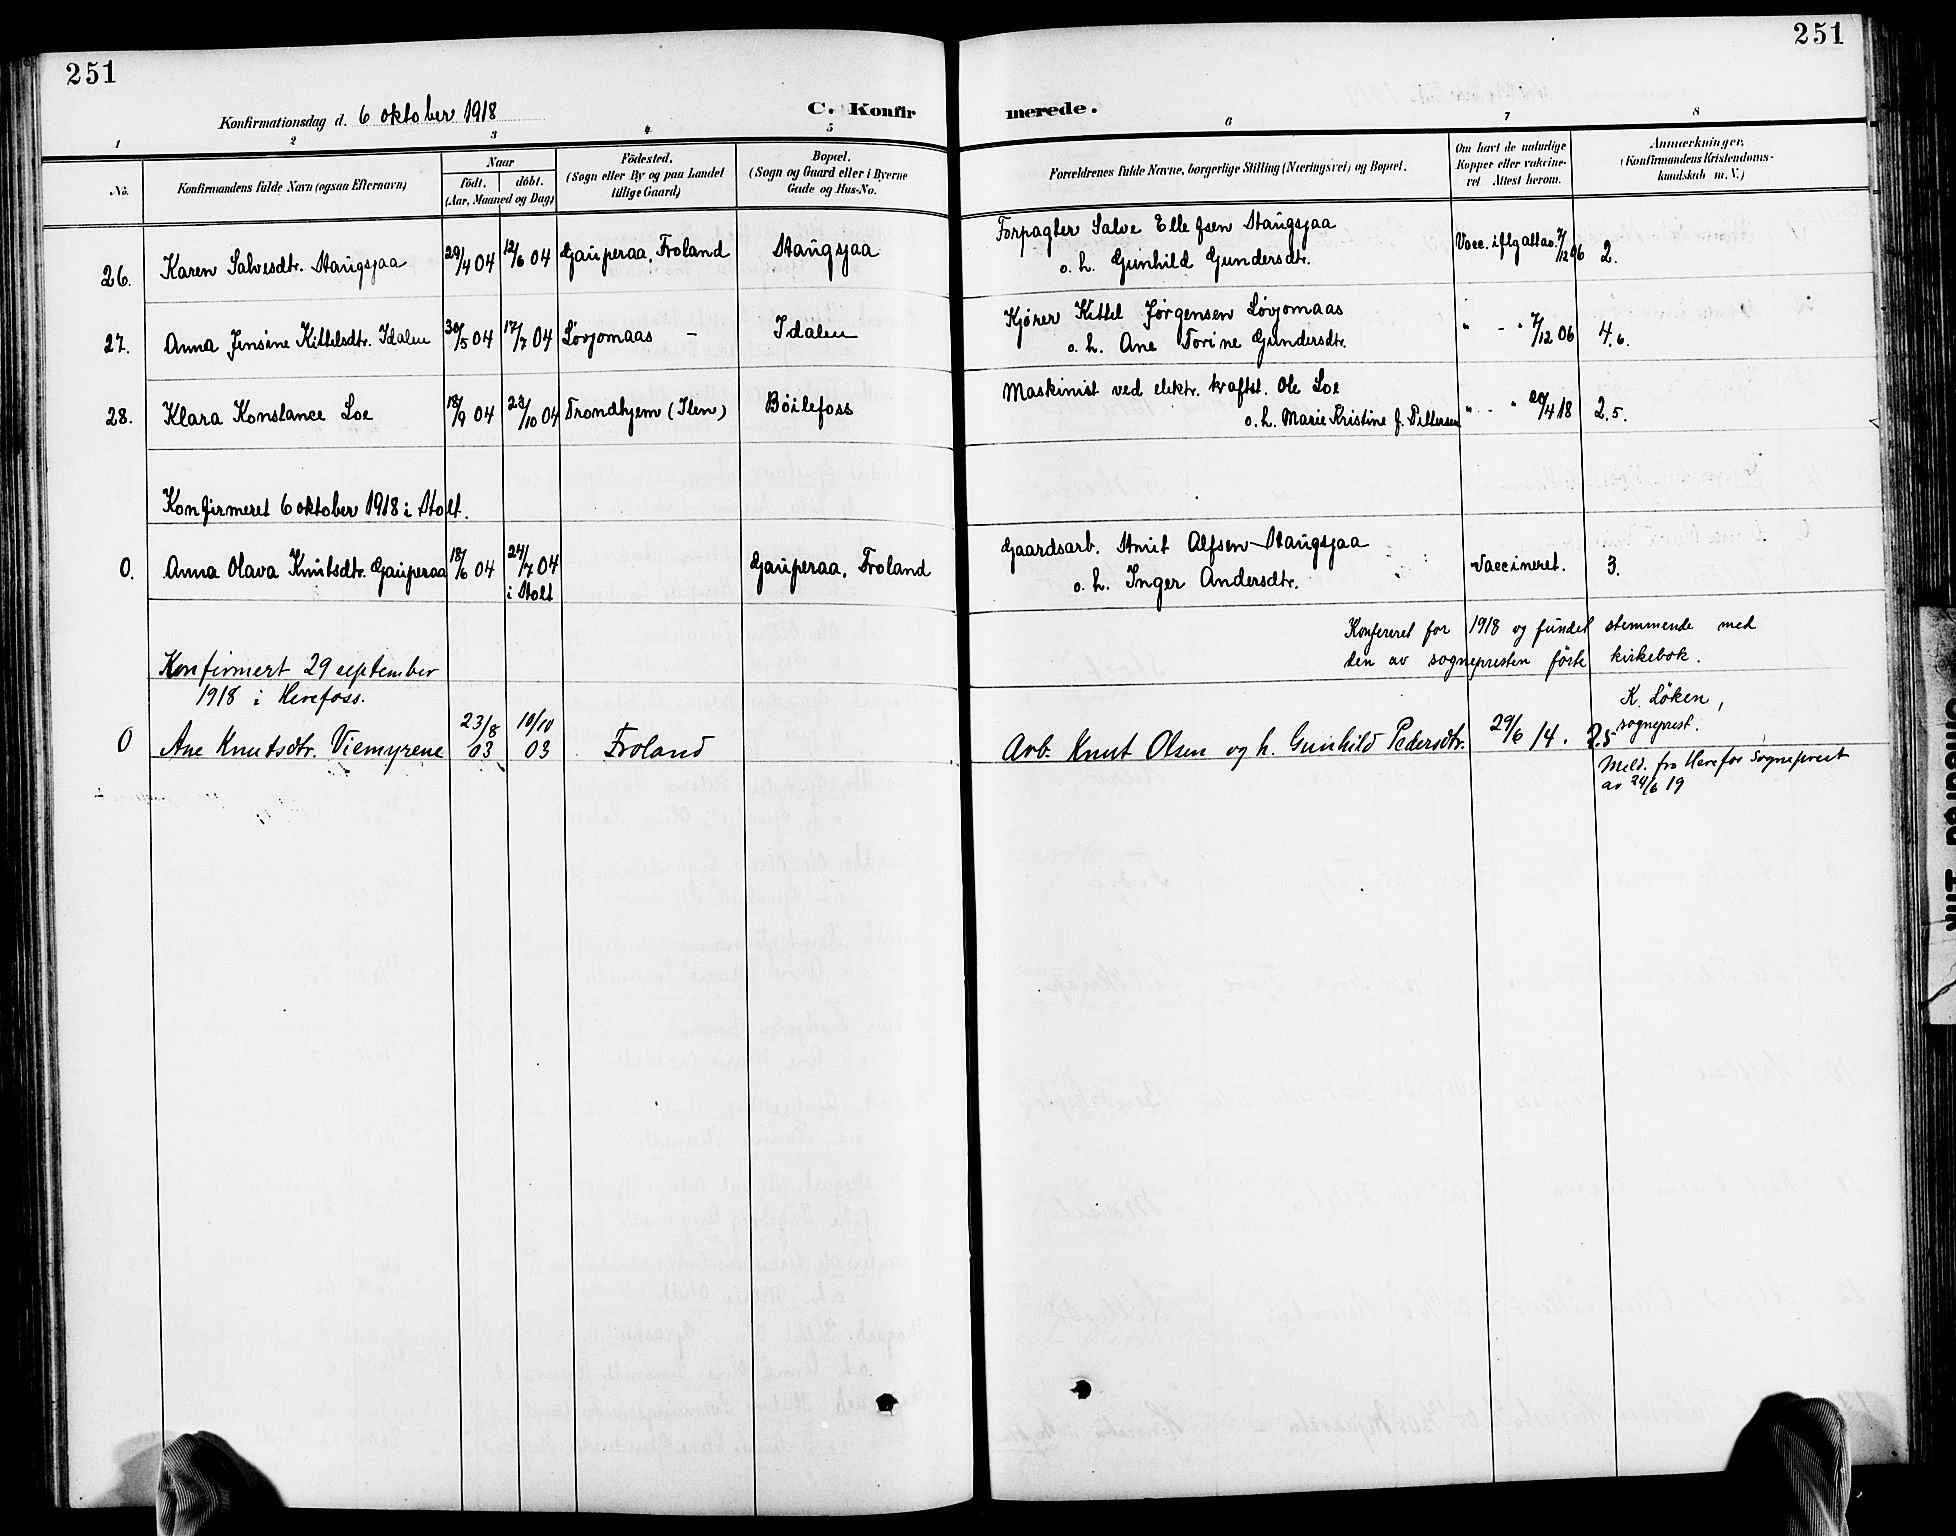 251
251
Konfirmationsdag d. 6 oktober 1918
C. Konfirmerede.
1 2 3 4 5 6 7 8
No.
Konfirmandens fulde Navn (ogsaa Efternavn)
Naar
födt. döbt.
(Aar, Maaned og Dag)
Födested.
(Sogn eller By og paa Landet
tillige Gaard)
Bopæl.
(Sogn og Gaard eller i Byerne
Gade og Hus-No.
Forældrenes fulde Navne, borgerlige Stilling (Næringsvei) og Bopæl.
Om havt de naturlige
Kopper eller vaccine-
ret Attest herom.
Anmærkninger,
(Konfirmandens Kristendoms-
kundskab m. V.)
26. Karen Salvesdtr. Staugsjaa 29/4 04 12/6 04 Gauperaa, Froland Staugsjaa Forpagter Salve Ellefsen Staugsjaa Vacc. iflg attao. 7/12 06 2.
o. h. Gunhild Gundersdtr.
27. Anna Jensine Kittelsdtr. Idalen 30/5 04 17/7 04 Lövjomaas - Idalen Kjörer Kittil Jörgensen Lövjomaas " - " 7/12 06 4.6.
o. h. Ane Torine Gundersdtr.
28. Klara Konstance Loe 18/9 04 23/10 04 Trondhjem (Ilen) Böilefoss Maskinist ved elektr. kraftst. Ole Loe " - " 20/4 18 2.5.
o. h. Marie Kristine J. Pettersen
Konfirmeret 6 oktober 1918 i Stolt.
0. Anna Olava Knutsdtr. Gauperaa 18/6 04 24/7 04 Gauperaa, Froland Gaardsarb. Knut Alfsen Staugsjaa Vaccineret. 3.
i Stolt
o. h. Inger Andersdtr.
Konfereret for 1918 og fundet stemmende med
den av sognepresten förte kirkebok.
K. Löken,
sogneprest.
Konfirmert 29 september
1918 i Herefoss.
0 Ane Knutsdtr. Viemyrene 23/8 03 10/10 03 Froland Arb. Knut Olsen og h. Gunhild Pedersdtr. 29/6 14. 2.5
Meld. fra Herefos Sogneprest
av 24/6 19